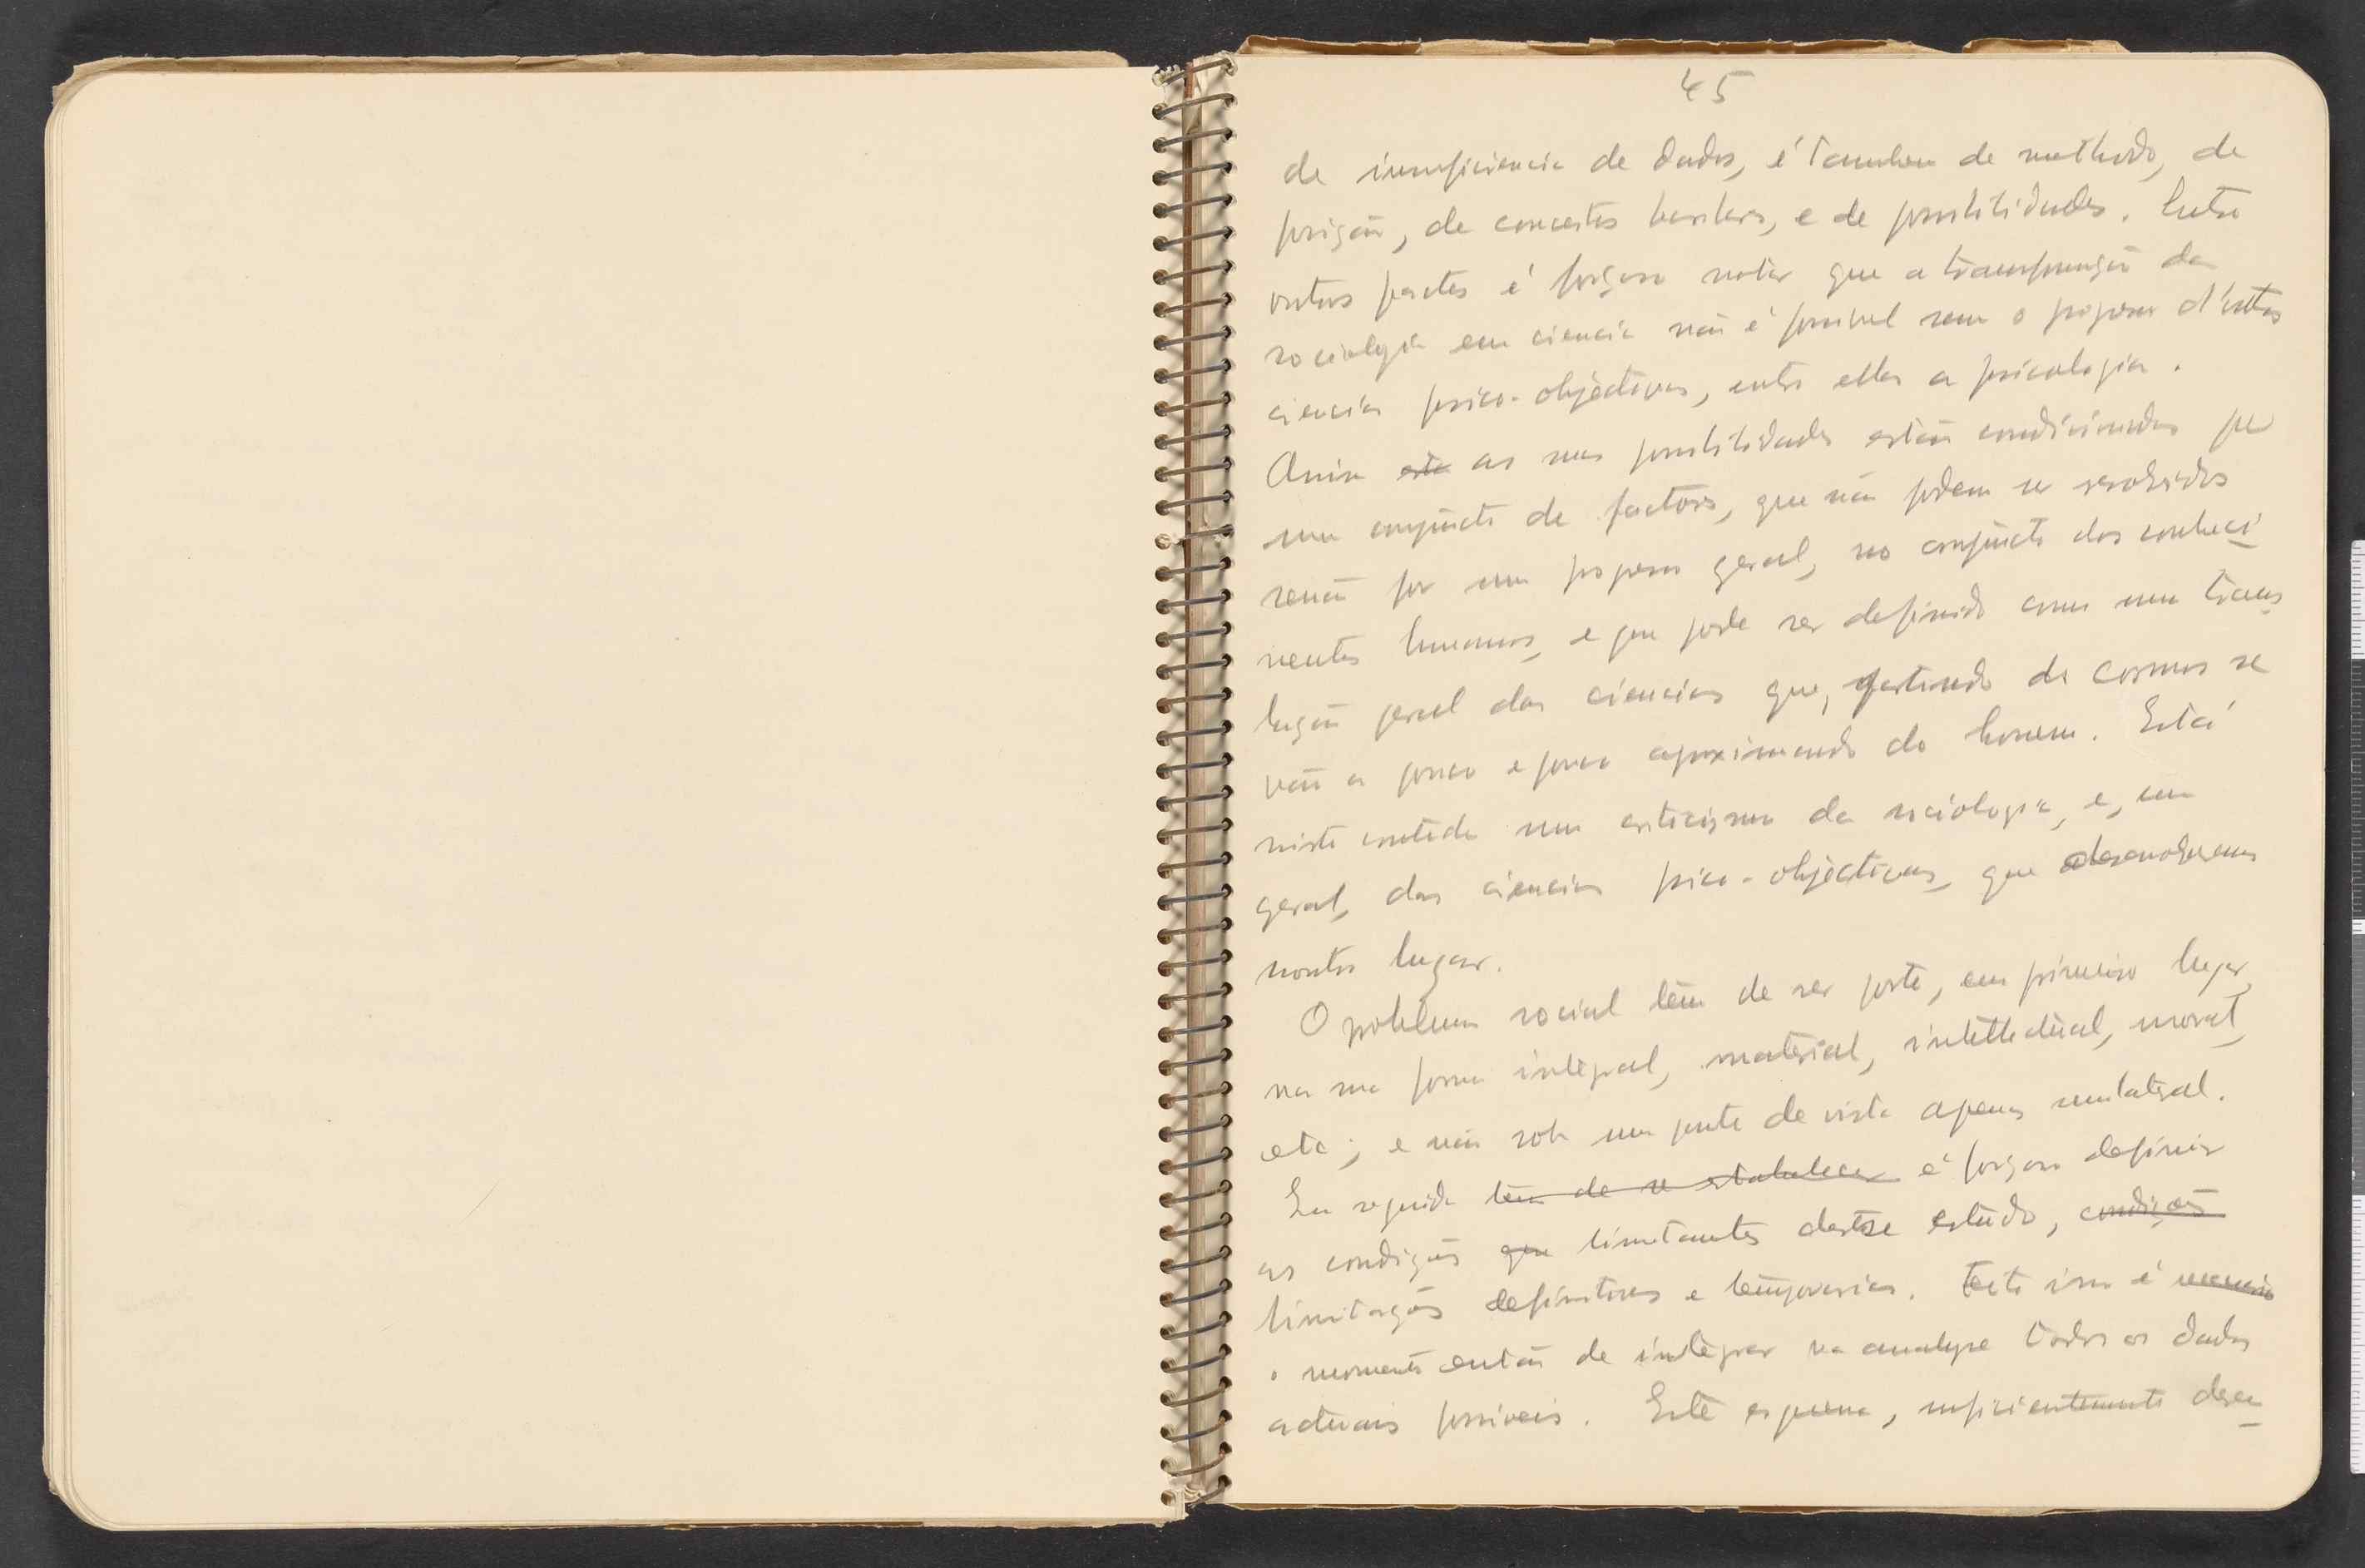 45
de insuficiencia de dados, é tambem de methodo, de
posição, de conceitos basilares, e de possibilidades. Entre
outros pontos é forçoso notar que a transformação da
sociologia em ciencia não é possivel sem o progresso d'outras
ciencias psico-objectivas, entre ellas a psicologia.
Assim esta as suas possibilidades estão condicionadas por
um conjuncto de factores, que não podem ser resolvidos
senão por um progresso geral, no conjuncto dos conheci
mentos humanos, e que pode ser definido como uma trans
lação geral das ciencias que, partindo do cosmos se
vão a pouco e pouco aproximando do homem. Está
nisto contido um criticismo da sociologia, e, em
geral, das ciencias psico-objectivas, que desenvolveremos
noutro lugar.
O problema social tem de ser posto, em primeiro lugar,
na sua forma integral, material, intellectual, moral,
etc; e não sob um ponto de vista apenas unilateral.
Em seguida tem de se estabelecer é forçoso definir
as condições que limitantes deste estudo, condições
limitações definitivas e temporarias. Feito isso é
o momento então de integrar na analyse todos os dados
actuais possiveis. Este esquema, suficientemente desen